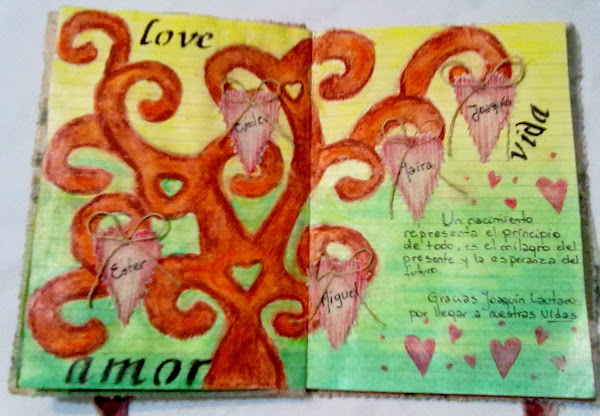 love
Ester
amor
Joaquín
vida
Maira
Miguel
Un nacimiento
representa el principio
de todo, es el milagro del
presente y la esperanza del
futuro.
Gracias Joaquín Lautaro
por llegar a nuestras vidas